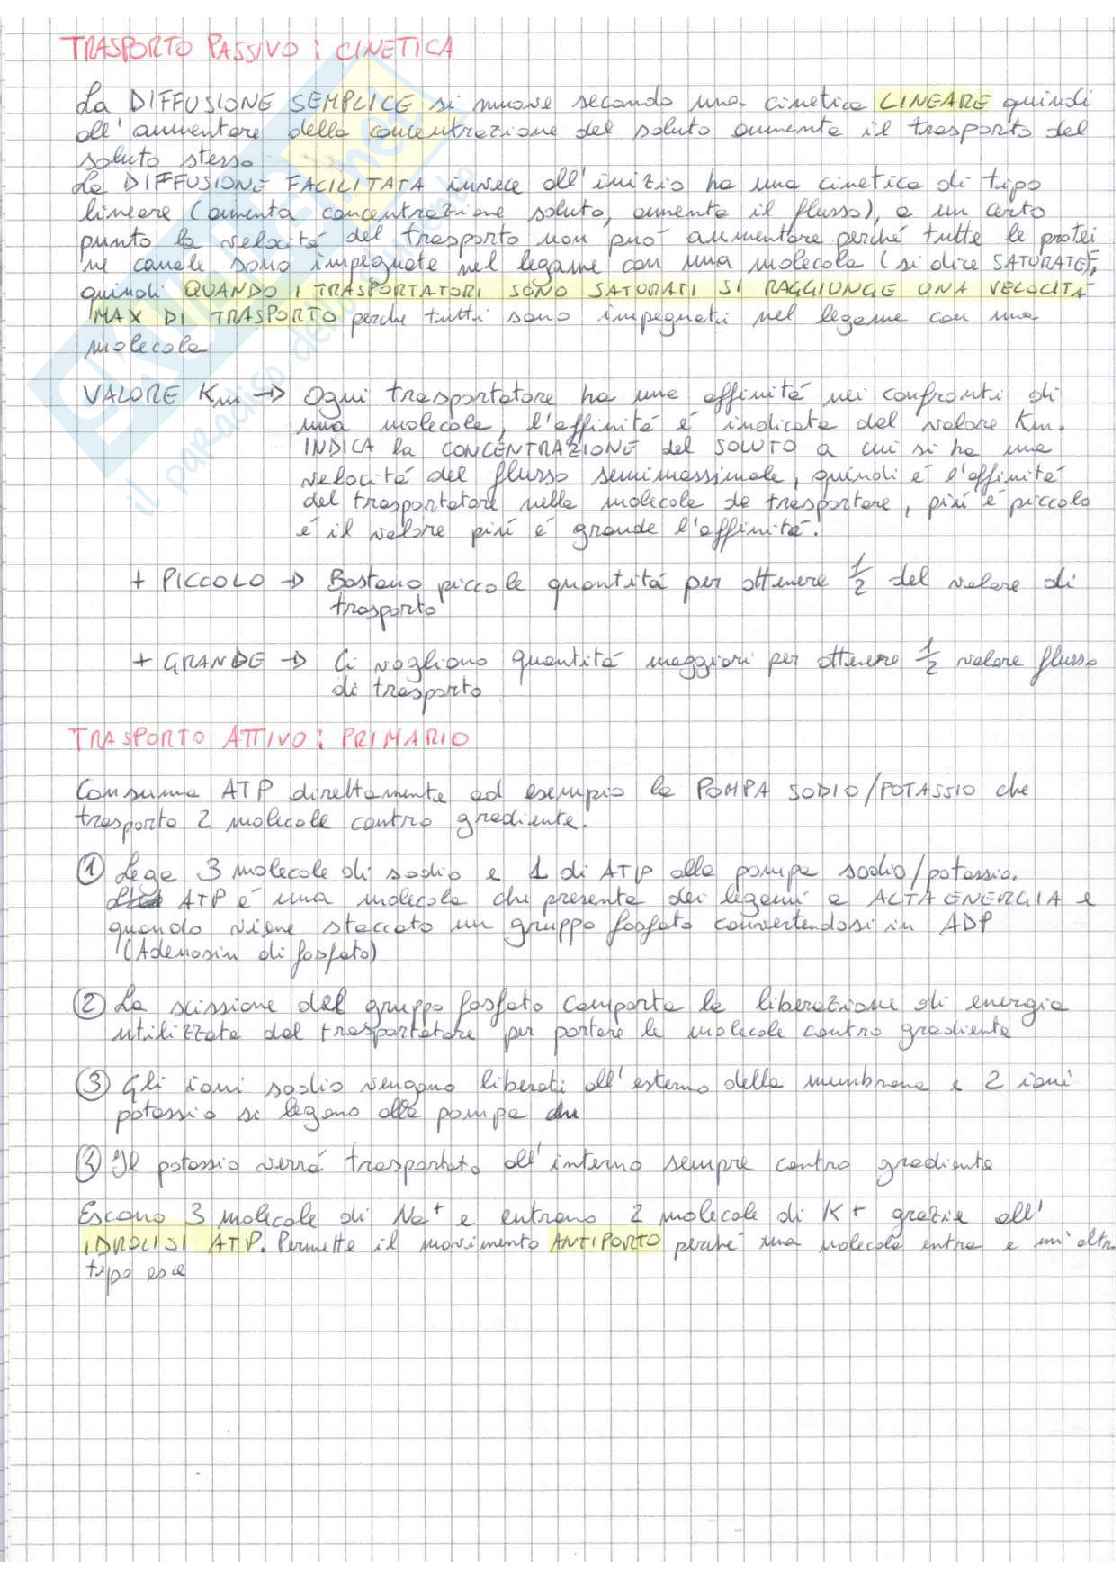 TRASPORTO PASSIVO : CINETICA
La DIFFUSIONE SEMPLICE si muove secondo una cinetica LINEARE quindi
all'aumentare della concentrazione del soluto aumenta il trasporto del
soluto stesso
La DIFFUSIONE FACILITATA invece all'inizio ha una cinetica di tipo
lineare (aumenta concentrazione soluto, aumenta il flusso), a un certo
punto la velocitá del trasporto non puó aumentare perché tutte le protei
ne canale sono impegnate nel legame con una molecola (si dice SATURATE),
quindi QUANDO I TRASPORTATORI SONO SATURATI SI RAGGIUNGE UNA VELOCITÁ
MAX DI TRASPORTO perche tutti sono impegnati nel legame con una
molecola
VALORE Km → Ogni trasportatore ha una affinitá nei confronti di
una molecola, l'affinitá é indicata dal valore Km.
INDICA la CONCENTRAZIONE del SOLUTO a cui si ha una
velocitá del flusso semimassimale, quindi é l'affinitá
del trasportatore nella molecola da trasportare, piú é piccolo
é il valore piú é grande l'affinitá.
+ PICCOLO → Bastano piccole quantitá per ottenere 1/2 del valore di
trasporto
+ GRANDE → Ci vogliono quantitá maggiori per ottenere 1/2 valore flusso
di trasporto
TRASPORTO ATTIVO : PRIMARIO
Consuma ATP direttamente ad esempio la POMPA SODIO/POTASSIO che
trasporta 2 molecole contro gradiente.
① Lega 3 molecole di sodio e 1 di ATP alla pompa sodio/potassio.
ATP é una molecola che presenta dei legami a ALTA ENERGIA e
quando viene staccato un gruppo fosfato convertendosi in ADP
(Adenosin di fosfato)
② La scissione del gruppo fosfato comporta la liberazione di energia
utilizzata dal trasportatore per portare le molecole contro gradiente
③ Gli ioni sodio vengono liberati all'esterno della membrana e 2 ioni
potassio si legano alla pompa che
④ Il potassio verrá trasportato all'interno sempre contro gradiente
Escono 3 molecole di Na+ e entrano 2 molecole di K+ grazie all'
IDROLISI ATP. Permette il movimento ANTIPORTO perché una molecola entra e un'altra
tipo esce
il paradiso dello